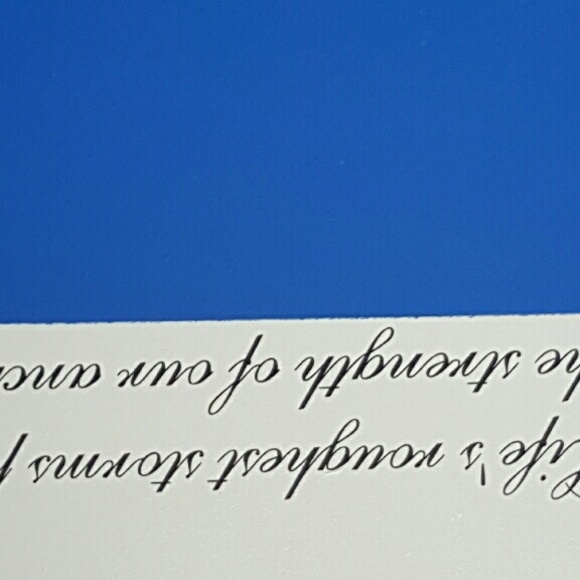 Life's roughest storms
strength of our